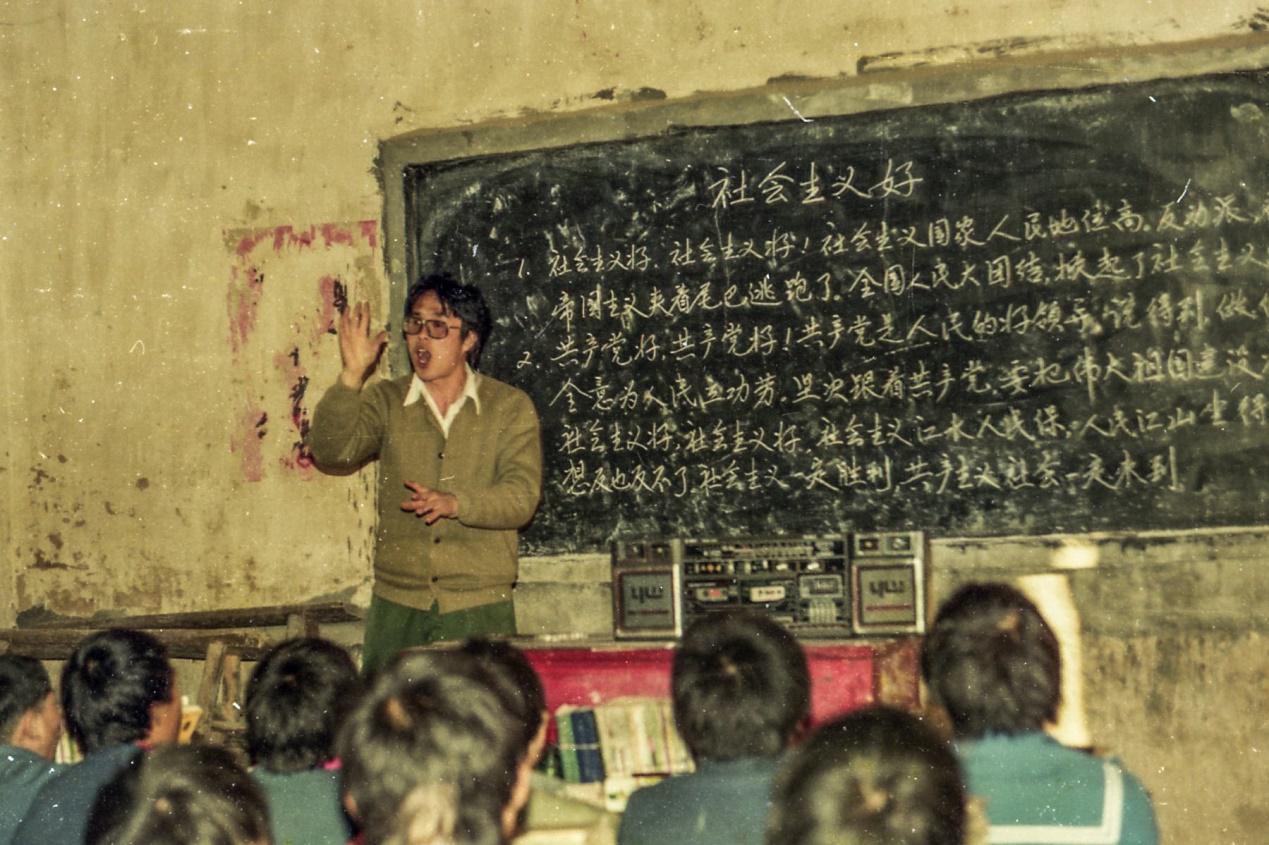 社会主义好
1. 社会主义好,社会主义好!社会主义国家人民地位高,反动派
帝国主义夹着尾巴逃跑了,全国人民大团结,掀起了社会主义
2. 共产党好,共产党好!共产党是人民的好领导,说得到,做
全意为人民立功劳,坚决跟着共产党,要把伟大祖国建设
社会主义好,社会主义好,社会主义江水人民保,人民江山坐得
想反也反不了,社会主义一定胜利,共产主义社会一定来到